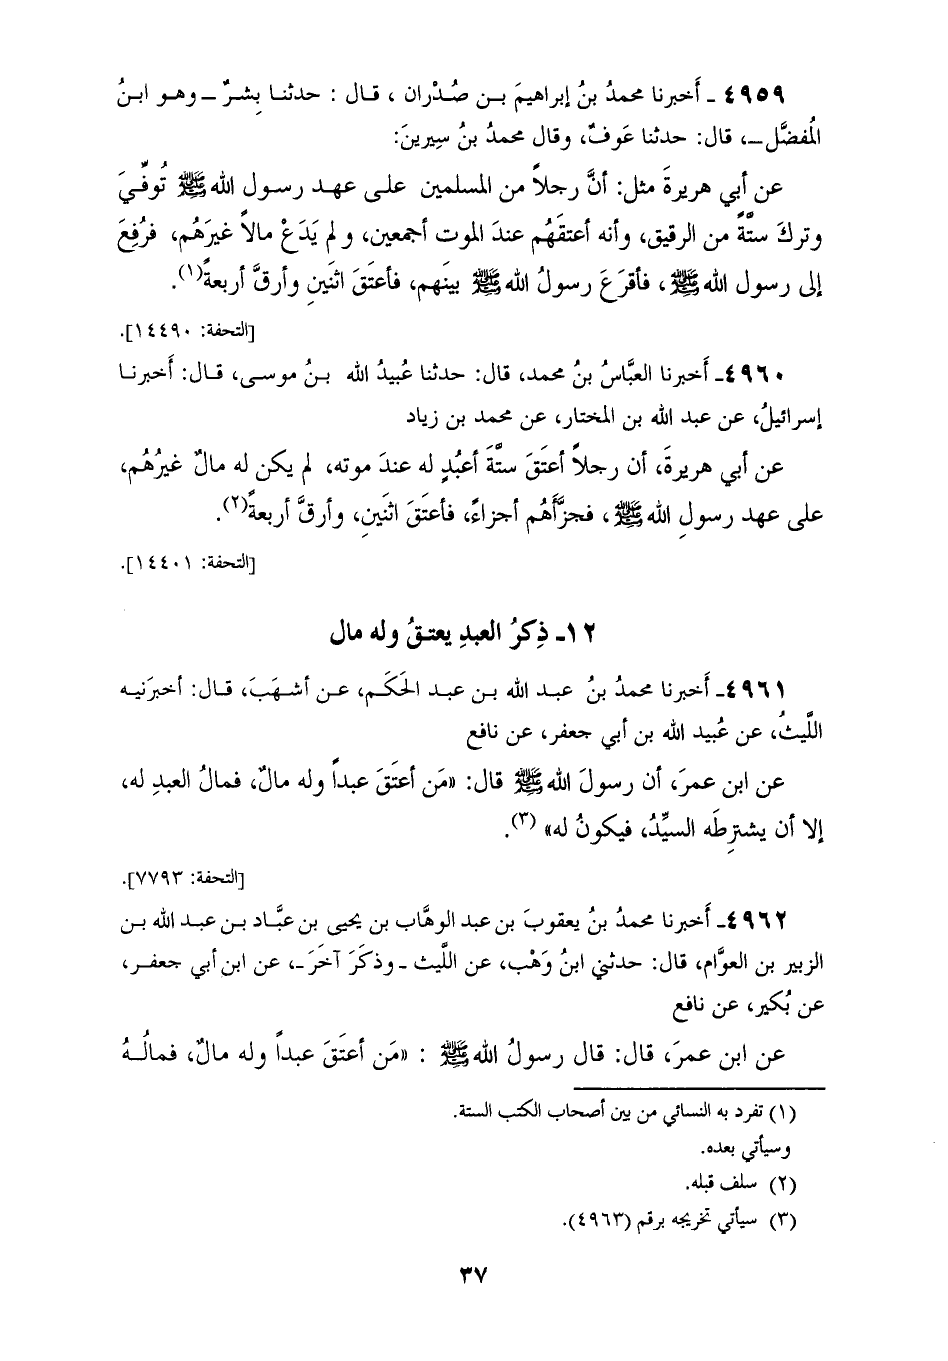 ٤٩٥٩ ـ أَخبرنا محمدُ بنُ إبراهيمَ بـن صُـدْران ، قـال : حدثنـا بِشـرٌ ــ وهـو ابـنُ
المُفضَّل ــ، قال: حدثنا عَوفٌ، وقال محمدُ بنُ سِيرينَ:
عن أبي هريرةَ مثل: أنَّ رجلاً من المسلمين علـى عهـد رسـول اللهﷺ تُوفِّـيَ
وتركَ ستَّةً من الرقيق، وأنه أعتقَهُم عندَ الموت أجمعين، و لم يَدَعْ مالاً غيرَهُم، فرُفِعَ
إلى رسول اللهﷺ، فأقرَعَ رسولُ اللهﷺ بينَهم، فأعتَقَ اثنَينِ وأرقَّ أربعةً(١).
[التحفة: ١٤٤٩٠].
٤٩٦٠ـ أَخبرنا العبَّاسُ بنُ محمد، قال: حدثنا عُبيدُ الله بـنُ موسـى، قـال: أَخبرنـا
إسرائيلُ، عن عبد الله بن المختار، عن محمد بن زياد
عن أبي هريرةَ، أن رجلاً أعتَقَ ستَّةَ أعبُدٍ له عندَ موته، لم يكن له مالٌ غيرُهُم،
على عهد رسولِ اللهﷺ، فجزَّأَهُم أجزاءً، فأعتَقَ اثنَينِ، وأرقَّ أربعةً(٢).
[التحفة: ١٤٤٠١].
١٢ـ ذِكرُ العبدِ يعتـقُ وله مال
٤٩٦١ـ أَخبرنا محمدُ بنُ عبـد الله بـن عبـد الحَكَـم، عـن أشـهَبَ، قـال: أخبرَنيـه
اللَّيثُ، عن عُبيد الله بن أبي جعفر، عن نافع
عن ابن عمرَ، أن رسولَ اللهﷺ قال: «مَن أعتَقَ عبداً وله مالٌ، فمالُ العبدِ له،
إلا أن يشترِطَه السيِّدُ، فيكونُ له» (٣).
[التحفة: ٧٧٩٣].
٤٩٦٢ـ أَخبرنا محمدُ بنُ يعقوبَ بن عبد الوهَّاب بن يحيى بن عبَّـاد بـن عبـد الله بـن
الزبير بن العوَّام، قال: حدثني ابنُ وَهْب، عن اللَّيث ـ وذكَرَ آخَرَ ـ، عن ابن أبي جعفـر،
عن بُكير، عن نافع
عن ابن عمرَ، قال: قال رسولُ اللهﷺ : «مَن أعتَقَ عبداً وله مالٌ، فمالُـهُ
(١) تفرد به النسائي من بين أصحاب الكتب الستة.
وسيأتي بعده.
(٢) سلف قبله.
(٣) سيأتي تخريجه برقم (٤٩٦٣).
٣٧